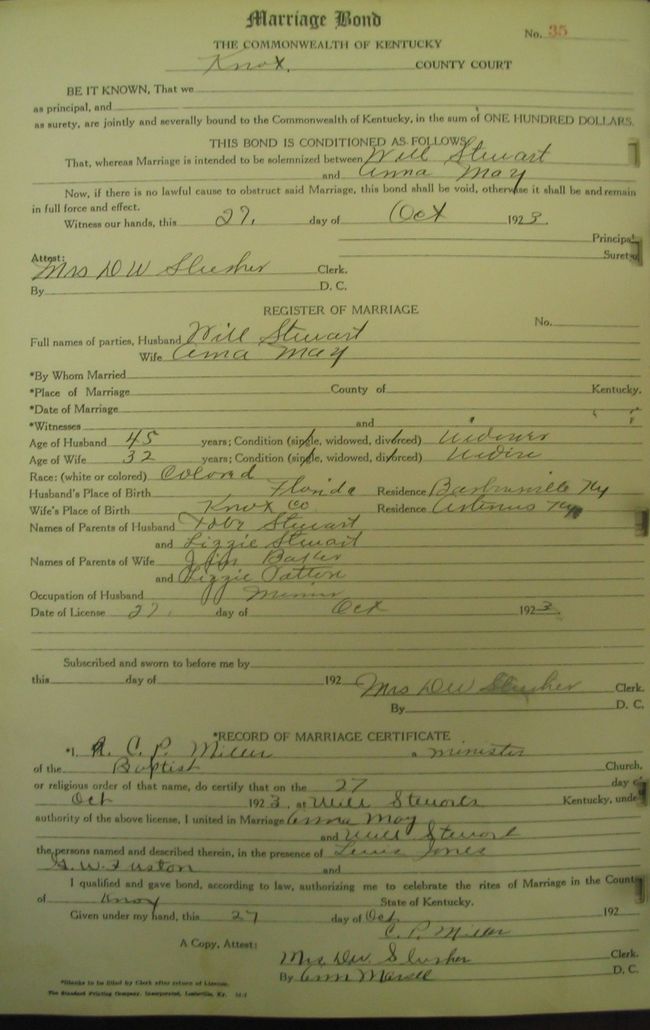 Marriage Bond
No. 35
THE COMMONWEALTH OF KENTUCKY
Knox, COUNTY COURT
BE IT KNOWN, That we
as principal, and
as surety, are jointly and severally bound to the Commonwealth of Kentucky, in the sum of ONE HUNDRED DOLLARS.
THIS BOND IS CONDITIONED AS FOLLOWS:
That, whereas Marriage is intended to be solemnized between Will Stewart
and Anna May
Now, if there is no lawful cause to obstruct said Marriage, this bond shall be void, otherwise it shall be and remain
in full force and effect.
Witness our hands, this 27. day of Oct 1923.
Principal
Surety
Attest:
Mrs D W Slusher Clerk.
By D. C.
REGISTER OF MARRIAGE
No.
Full names of parties, Husband Will Stewart
Wife Anna May
*By Whom Married
*Place of Marriage County of Kentucky.
*Date of Marriage
*Witnesses and
Age of Husband 45 years; Condition (single, widowed, divorced) Widower
Age of Wife 32 years; Condition (single, widowed, divorced)
Race: (white or colored) Colored
Husband's Place of Birth Florida Residence Barbourville Ky
Wife's Place of Birth Knox Co Residence Artemus Ky
Names of Parents of Husband Tobe Stewart
and Lizzie Stewart
Names of Parents of Wife
and Lizzie Patton
Occupation of Husband
Date of License 27. day of Oct 1923.
Subscribed and sworn to before me by
this day of 192
Mrs D W Slusher Clerk.
By D. C.
*RECORD OF MARRIAGE CERTIFICATE
*I, C. P. Miller a minister
of the Baptist Church.
or religious order of that name, do certify that on the 27 day of
Oct 1923. at Will Kentucky, under
authority of the above license, I united in Marriage Anna May
and Will Stewart
the persons named and described therein, in the presence of Lewis Jones
G. W. Fuston and
I qualified and gave bond, according to law, authorizing me to celebrate the rites of Marriage in the County
of Knox State of Kentucky.
Given under my hand, this 27 day of Oct 192
C. P. Miller
A Copy, Attest:
Mrs. D W Slusher Clerk.
By D. C.
*Blanks to be filled by Clerk after return of License.
The Standard Printing Company, Incorporated, Louisville, Ky.